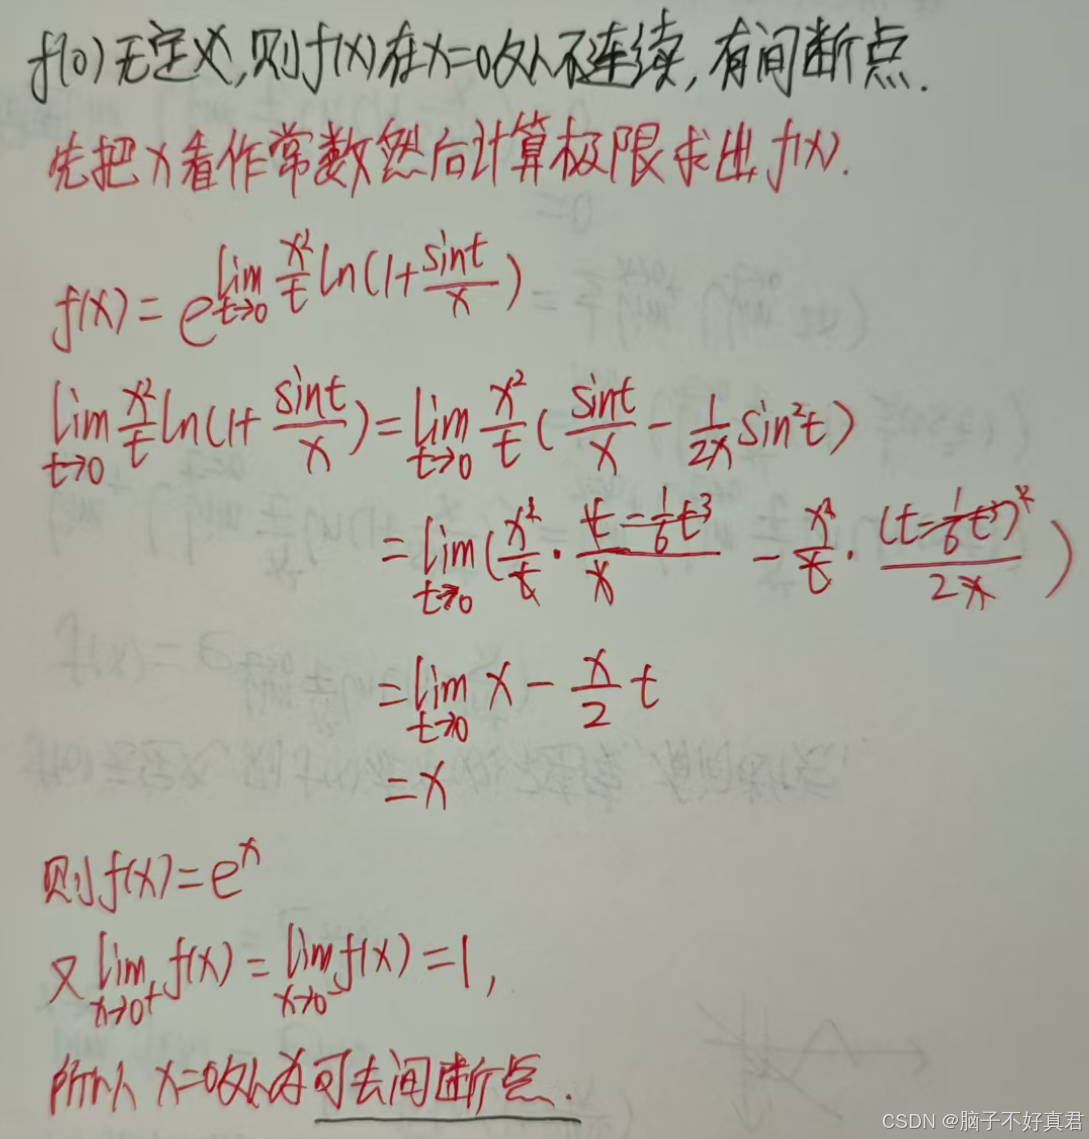 f(0)无定义,则f(x)在x=0处不连续,有间断点.
先把x看作常数然后计算极限求出f(x).
f(x)=e^{lim_{t→0} x²/t ln(1+sint/x)}
lim_{t→0} x²/t ln(1+sint/x)=lim_{t→0} x²/t (sint/x - 1/2x sin²t)
=lim_{t→0}(x²/t · (t-1/6t³)/x - x²/t · (t-1/6t³)²/2x)
=lim_{t→0} x - x/2 t
=x
则f(x)=e^x
又lim_{x→0⁺}f(x)=lim_{x→0⁻}f(x)=1,
所以x=0处为可去间断点.
CSDN @脑子不好真君